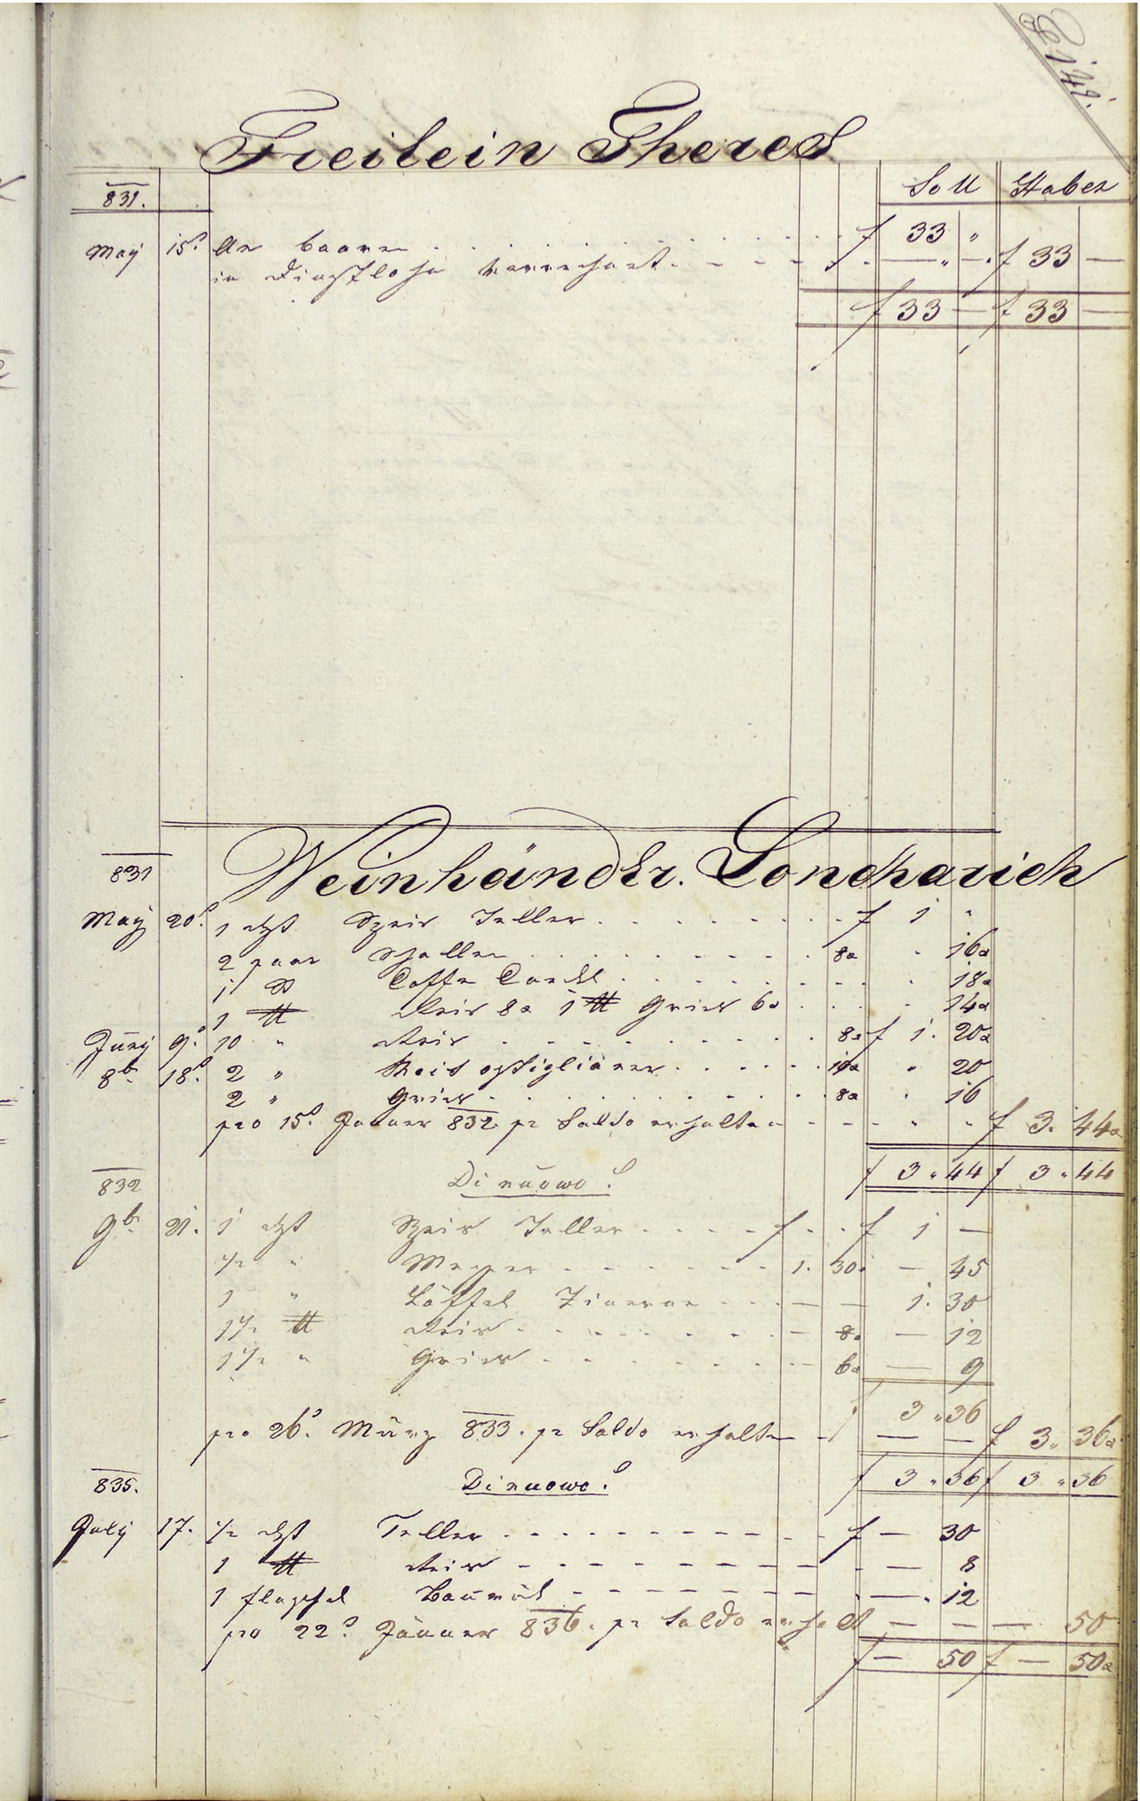 Freilein Theres
831.
Soll Haber
May 15. An baaren f 33 "
in Dienstlohn verrechnet f 33 —
f 33 — f 33 —
831
Weinhändlr. Loncharich
May 20. 1 dzt Speis Teller f 1 "
2 paar Schallen 8x " 16x
1 Coffe " 18x
1 ℔ Reis 8x 1 ℔ Gries 6x " 14x
Juny 9. 10 " Reis 8x f 1. 20x
8b. 18. 2 " Reis ostiglianer 10x " 20
2 " Gries 8x " 16
pro 15. Jänner 832 pr Saldo erhalten f 3. 44x
f 3 " 44 f 3 " 44
832 Di nuowo.
9b. 21. 1 dzt Speis Teller f 1 —
1/2 " Messer 1. 30 — 45
1 " Löffel Zinerne — — 1. 30
1 1/2 ℔ Reis 8x — 12
1 1/2 " Gries 6x — 9
3 " 36
pro 26. März 833. pr Saldo erhalten — — f 3. 36x
835. Di nuowo. f 3 " 36 f 3 " 36
July 17. 1/2 dzt Teller f — 30
1 ℔ Reis — 8
1 flaschel Baumöl — 12
pro 22. Jänner 836. pr Saldo erhalt — — — 50
f — 50 f — 50x